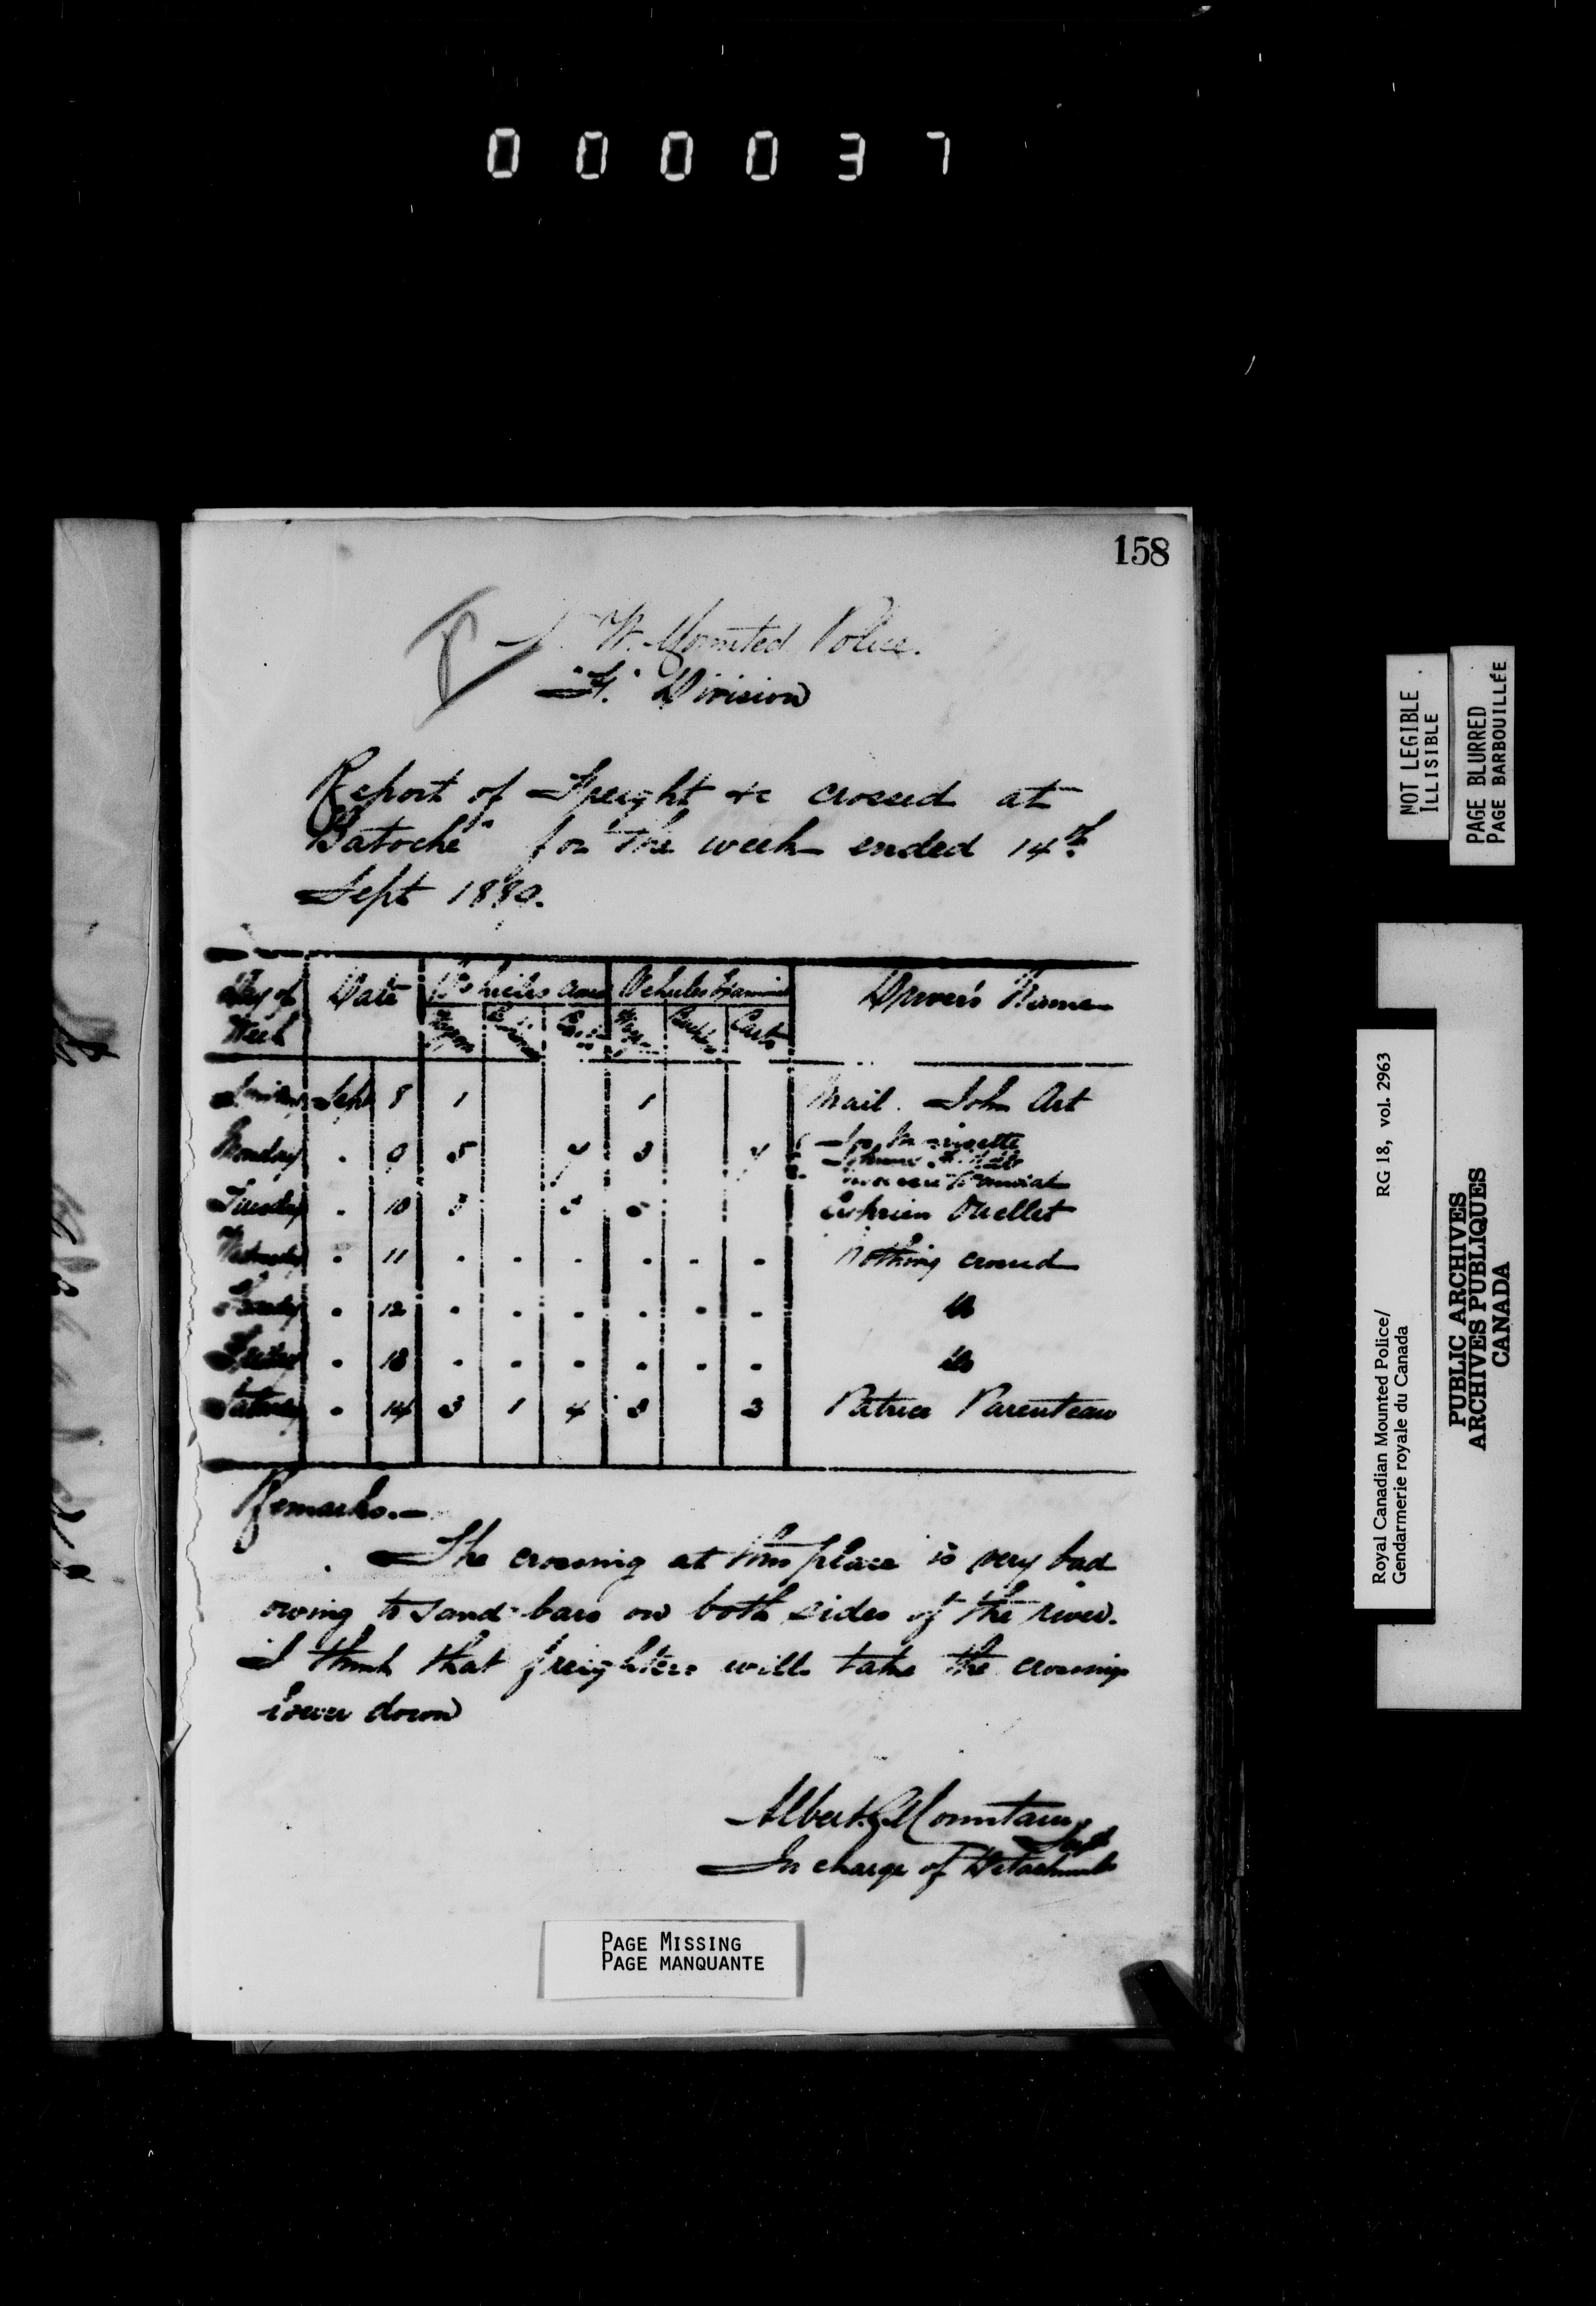 0 0 0 0 3 7
158
N. W. Mounted Police.
"F." Division
Report of Freight &c crossed at
"Batoche" for the week ended 14th
Sept 1889.
Day of Week Date Vehicles Vehicles Examined Driver's Name
Wagons Carts Wagons Buckboards Carts
Sunday Sept 8 1 1 Mail. John Art
Monday " 9 5 4 3 4
Tuesday " 10 3 3 Ouellet
Wednesday " 11 " " " " " " Nothing crossed
" 12 " " " " " " do
Friday " 13 " " " " " " do
Saturday " 14 3 1 4 3 3 Patrice Parenteau
Remarks.—
The crossing at this place is very bad
owing to sand-bars on both sides of the river.
I think that freighters will take the crossing
lower down
Albert Mountain
Sergt
In charge of Detachment
PAGE MISSING
PAGE MANQUANTE
NOT LEGIBLE
ILLISIBLE
PAGE BLURRED
PAGE BARBOUILLÉE
Royal Canadian Mounted Police/ RG 18, vol. 2963
Gendarmerie royale du Canada
PUBLIC ARCHIVES
ARCHIVES PUBLIQUES
CANADA